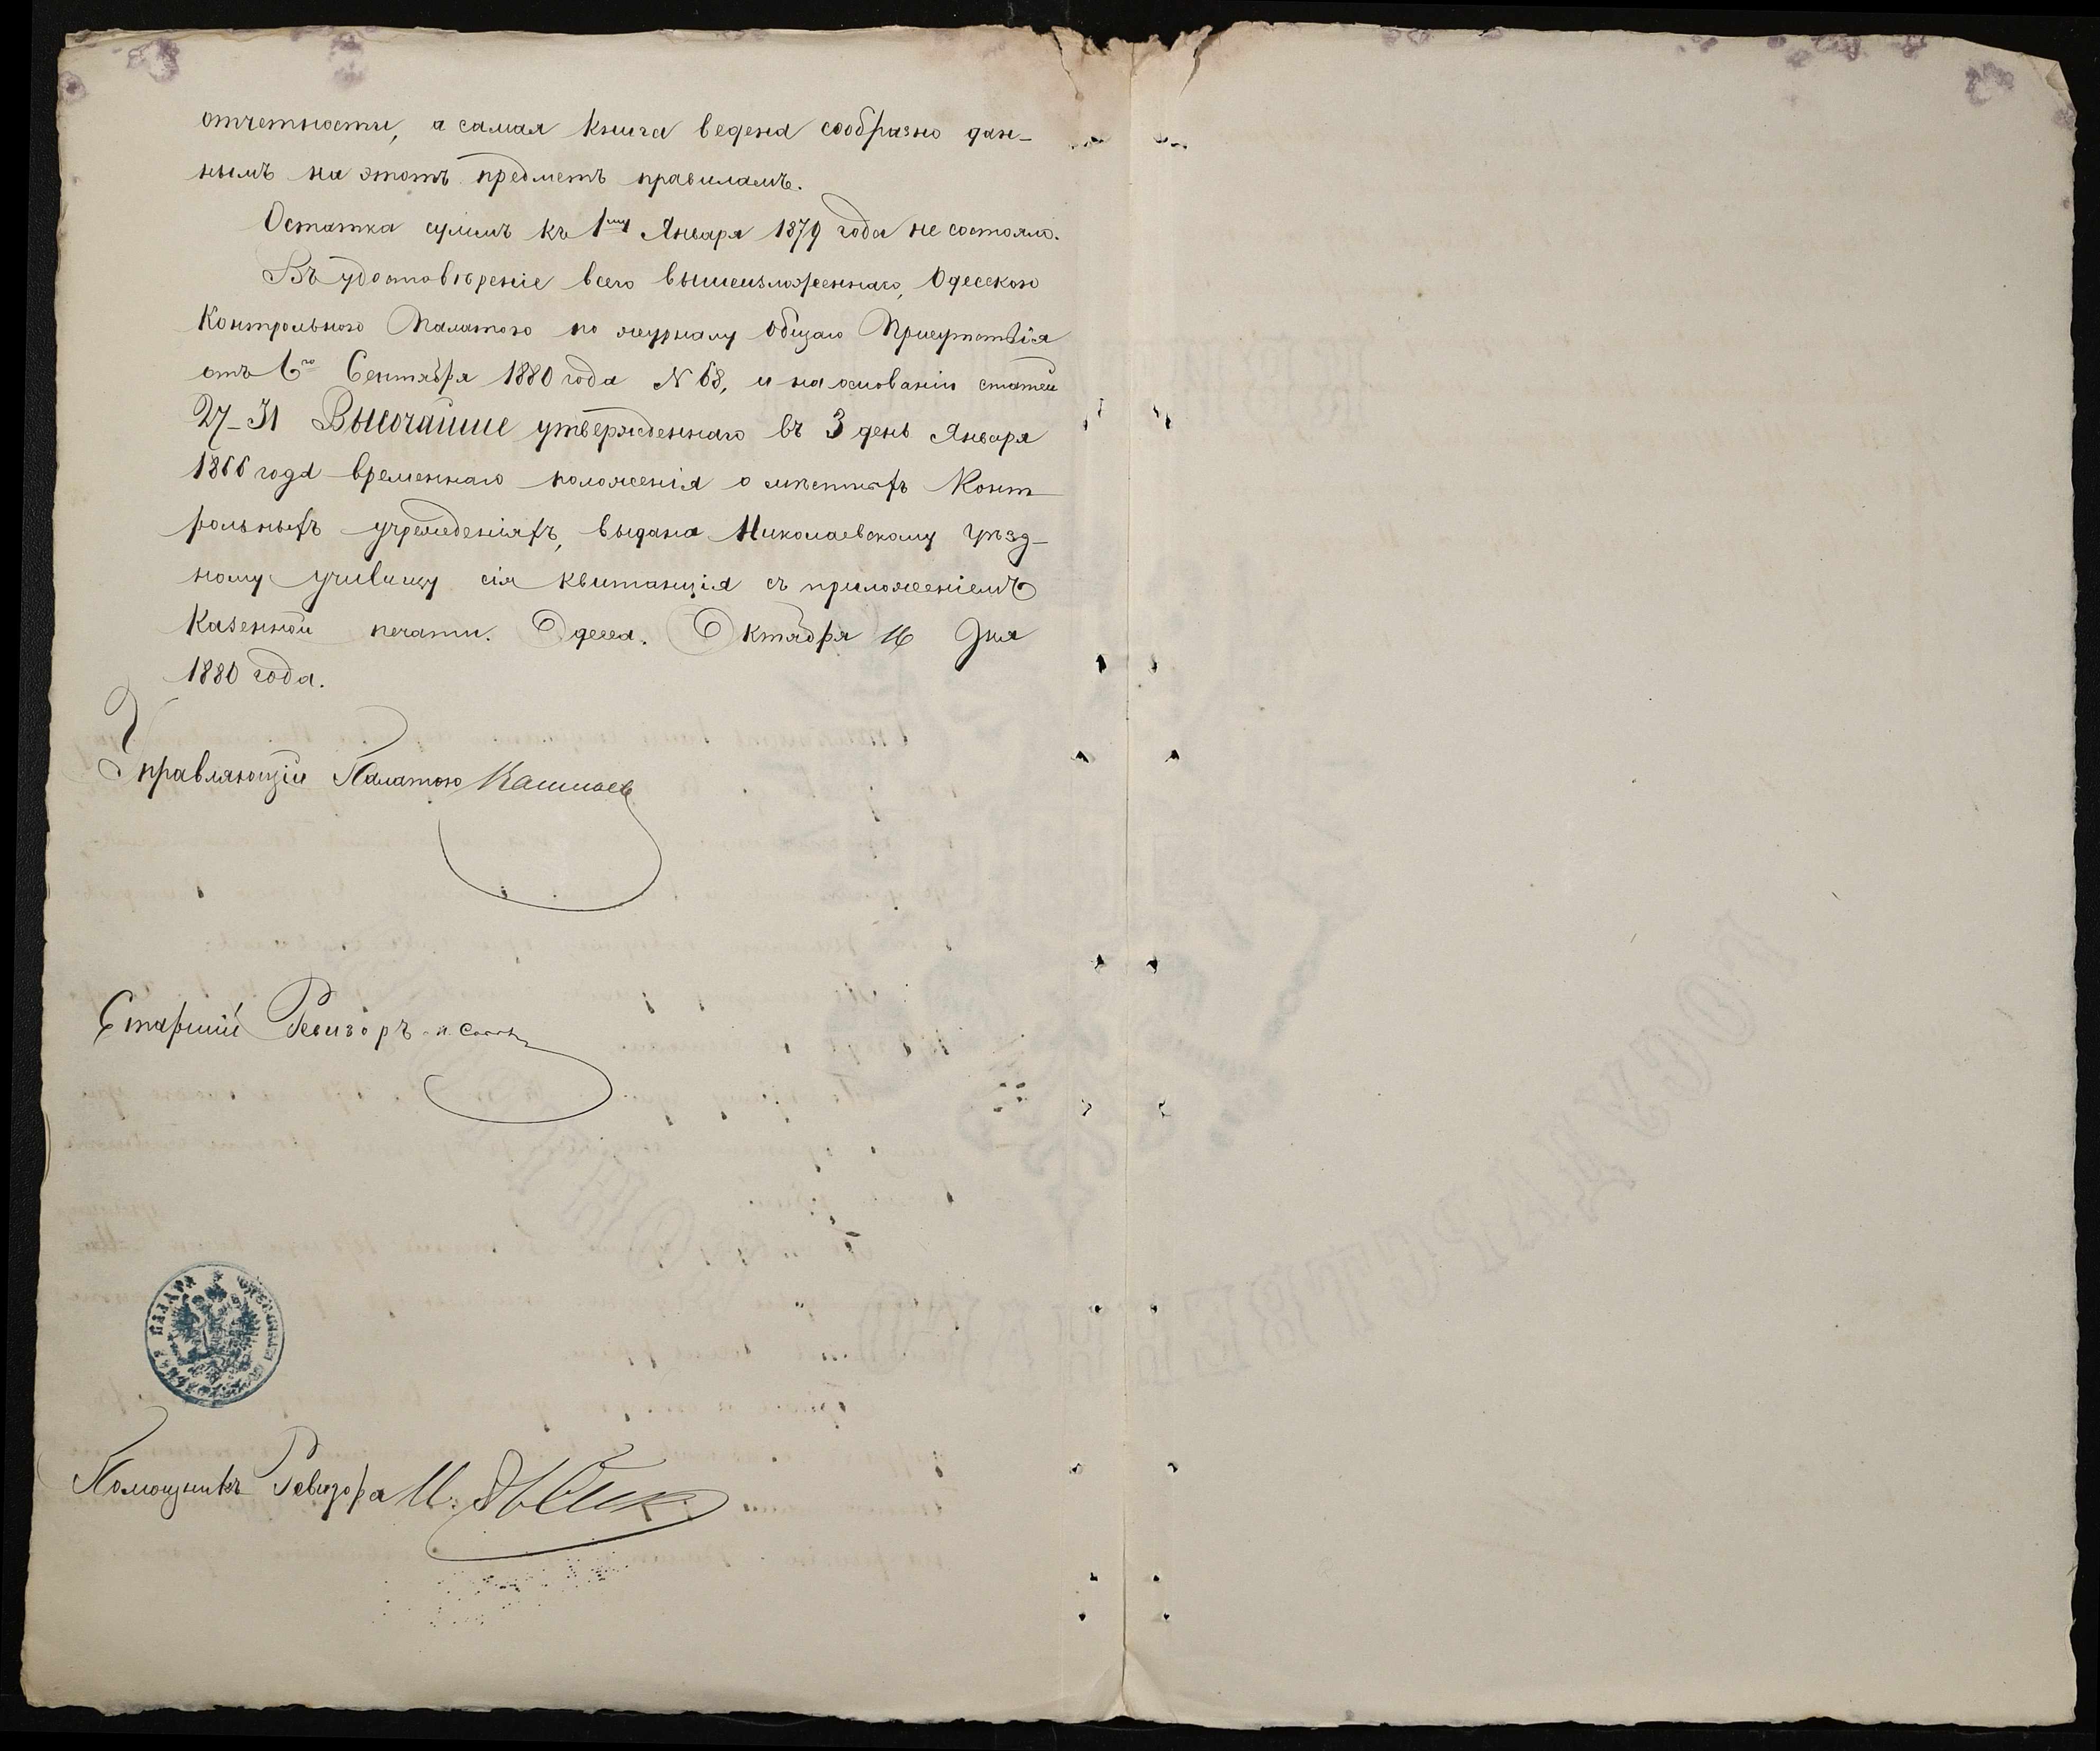 отчетности, а самая книга ведена сообразно дан-
нымъ на этотъ предметъ правиламъ.
Остатка суммъ къ 1му Января 1879 года не состояло.
Въ удостовѣреніе всего вышеизложеннаго, Одесскою
Контрольною Палатою по журналу Общаго Присутствія
отъ 6го Сентября 1880 года № 68, и на основаніи статей
27-31 Высочайше утвержденнаго въ 3 день Января
1866 года временнаго положенія о мѣстныхъ Конт-
рольныхъ учрежденіяхъ, выдана Николаевскому Уѣзд-
ному училищу сія квитанція съ приложеніемъ
Казенной печати. Одесса. Октября 16 Дня
1880 года.
Управляющій Палатою
Старшій Ревизоръ
ПАЛАТА
Помощникъ Ревизора